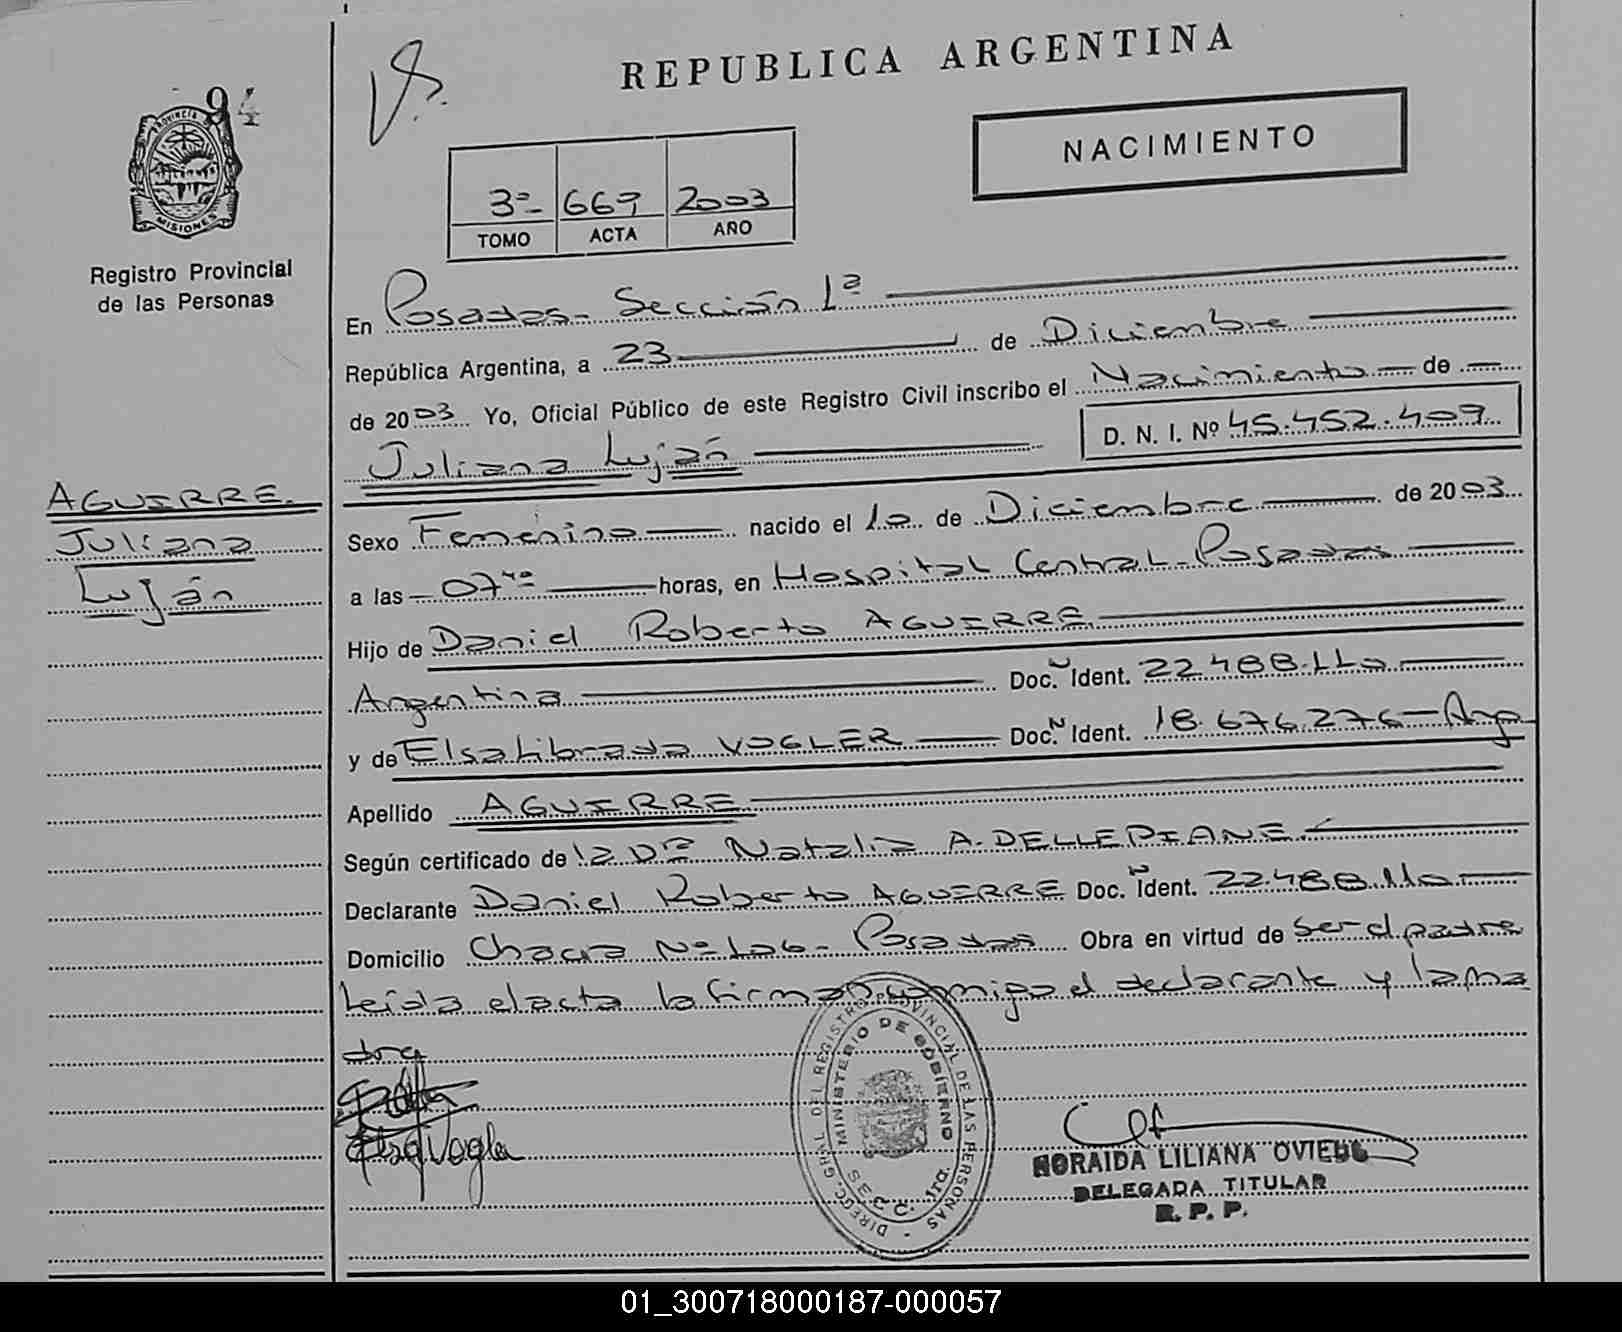 94
REPUBLICA ARGENTINA
NACIMIENTO
PROVINCIA DE
MISIONES
Registro Provincial
de las Personas
3º- 669 2003
TOMO ACTA AÑO
En Posadas- Sección 1ª
República Argentina, a 23 de Diciembre
de 2003 Yo, Oficial Público de este Registro Civil inscribo el Nacimiento de
Juliana Luján D. N. I. Nº 45.452.409
AGUIRRE
Juliana
Luján
Sexo Femenino nacido el 10 de Diciembre de 2003
a las 07⁴⁰ horas, en Hospital Central- Posadas
Hijo de Daniel Roberto AGUIRRE
Argentina Doc. Ident. 22.488.110
y de Elsa Librada VOGLER Doc. N Ident. 18.676.276 - Arg
Apellido AGUIRRE
Según certificado de la Drª Natalia A. DELLEPIANE
Declarante Daniel Roberto AGUIRRE Doc. N Ident. 22.488.110
Domicilio Chacra Nº 106- Posadas Obra en virtud de ser el padre
Leída el acta la firman conmigo el declarante y la ma
dre
Elsa Vogler
DIREC. GRAL. DEL REGISTRO PROVINCIAL DE LAS PERSONAS
MINISTERIO DE GOBIERNO
SECC. 1ra.
NORAIDA LILIANA OVIEDO
DELEGADA TITULAR
R. P. P.
01_300718000187-000057